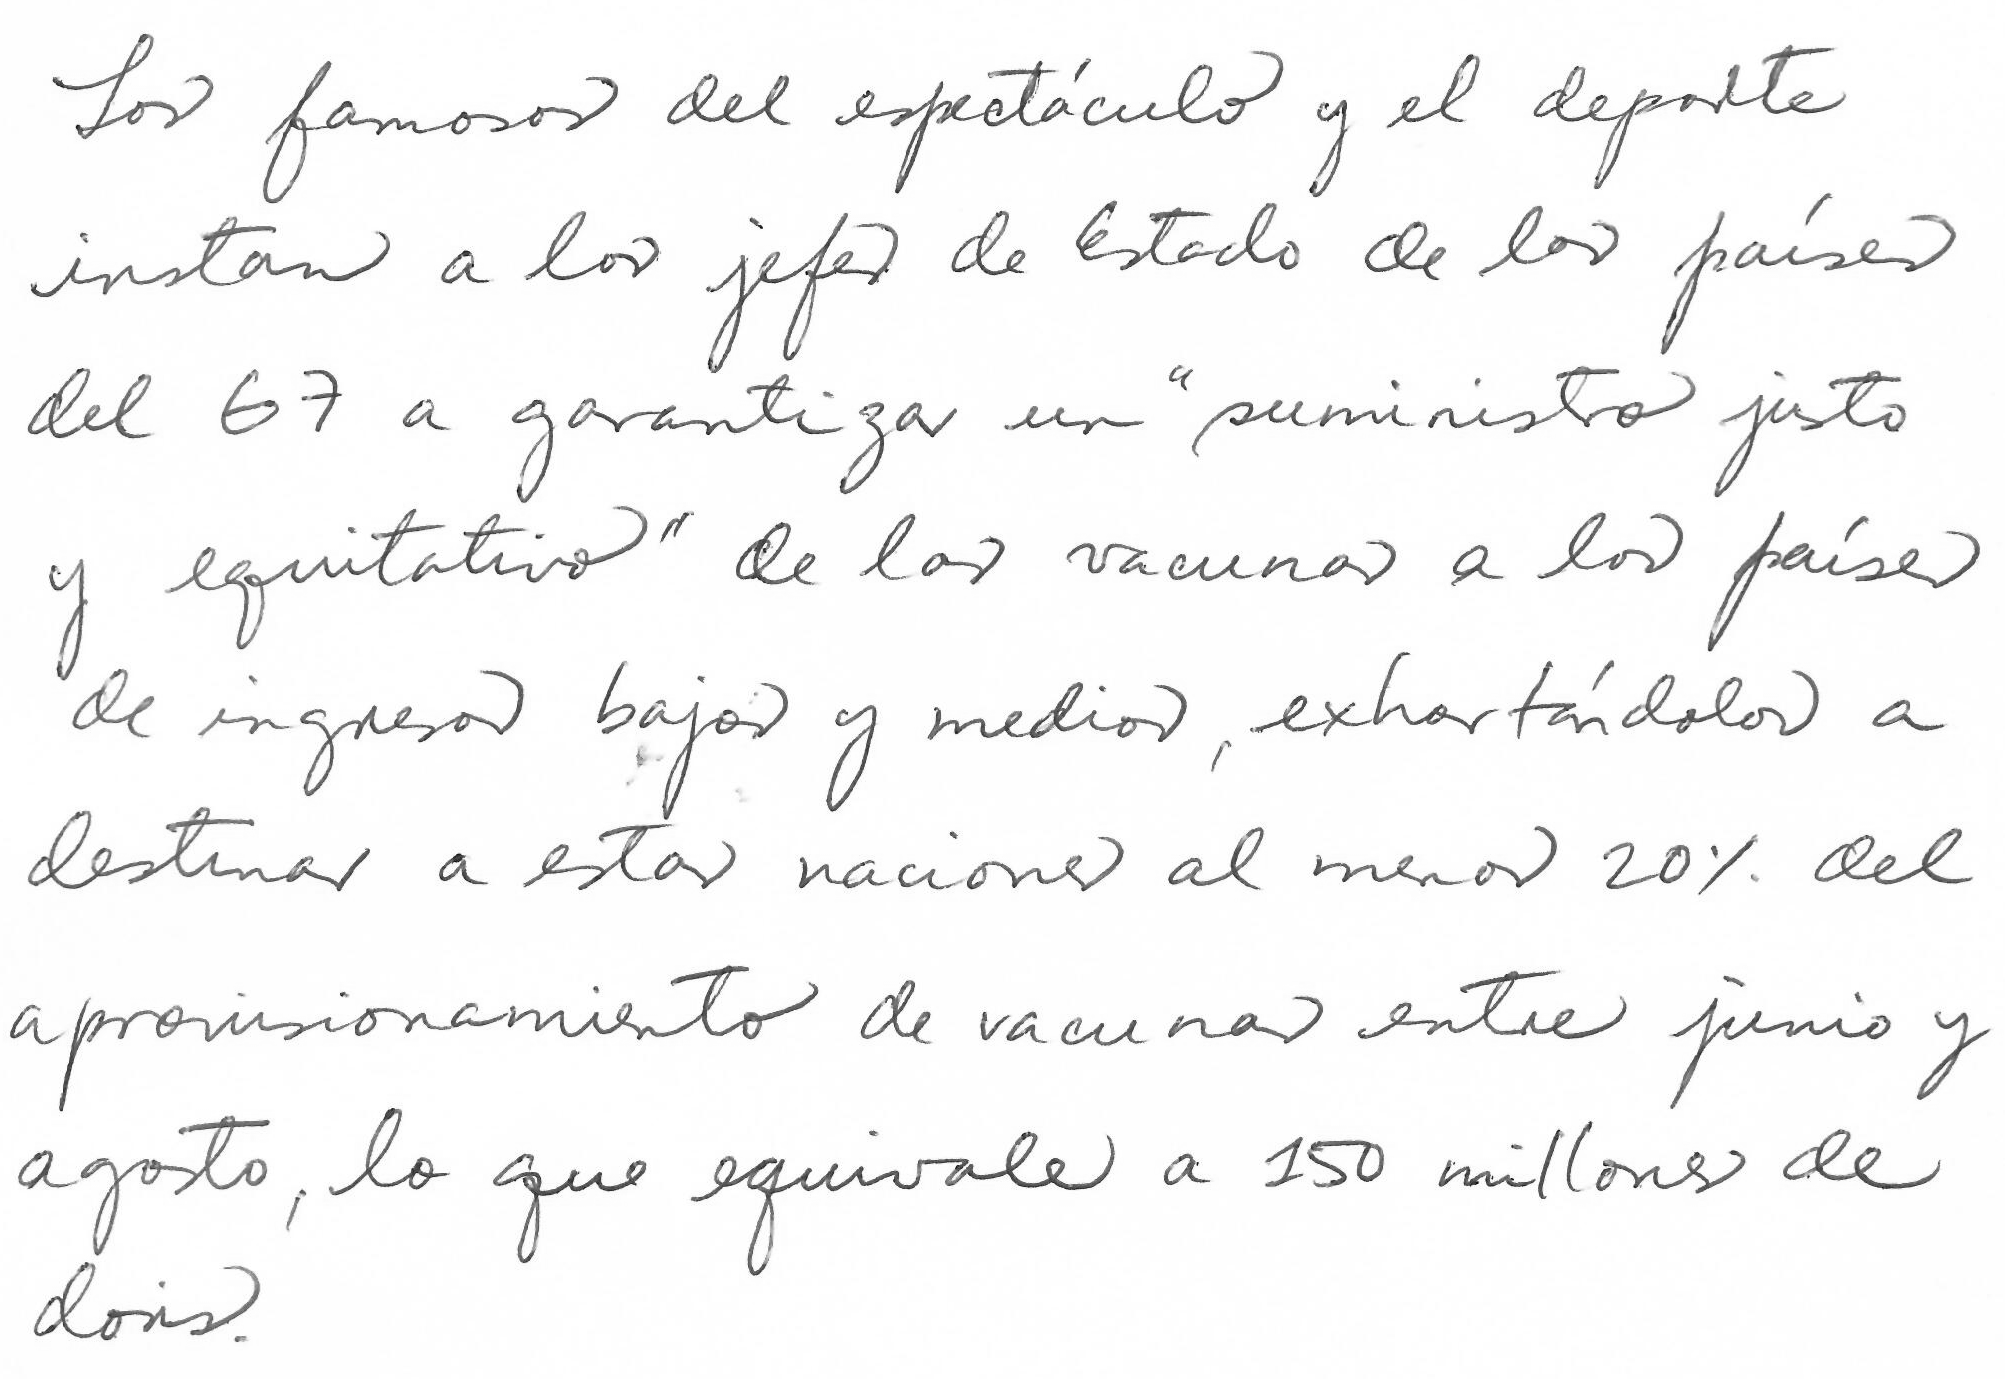 Los famosos del espectáculo y el deporte
instan a los jefes de Estado de los países
del G7 a garantizar un "suministro justo
y equitativo" de las vacunas a los países
de ingresos bajos y medios, exhortándolos a
destinar a estas naciones al menos 20% del
aprovisionamiento de vacunas entre junio y
agosto, lo que equivale a 150 millones de
dosis.